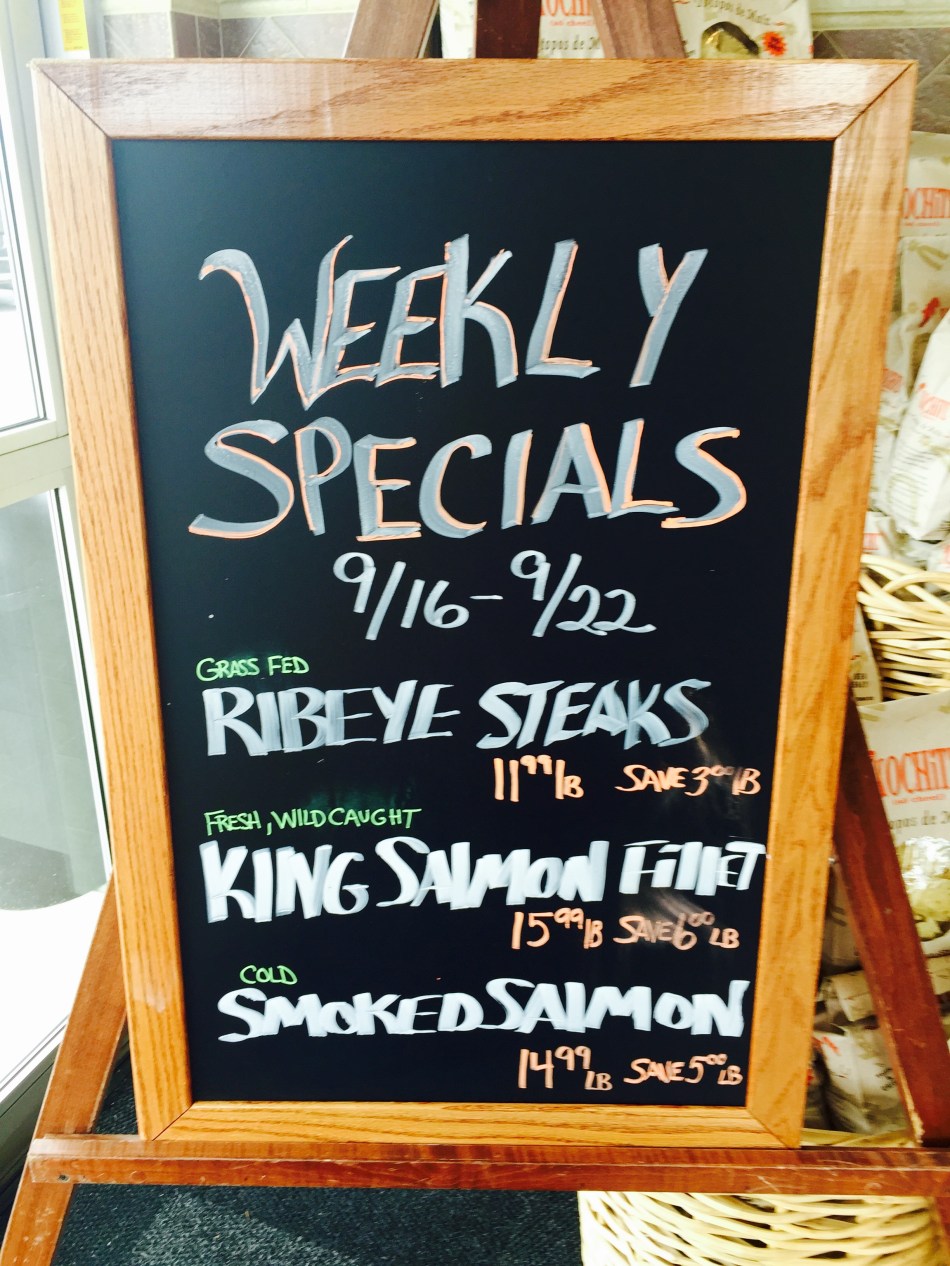 WEEKLY
SPECIALS
9/16 - 9/22
GRASS FED
RIBEYE STEAKS
11⁹⁹/LB SAVE 3⁰⁰/LB
FRESH, WILD CAUGHT
KING SALMON FILLET
15⁹⁹/LB SAVE 6⁰⁰/LB
COLD
SMOKED SALMON
14⁹⁹/LB SAVE 5⁰⁰/LB